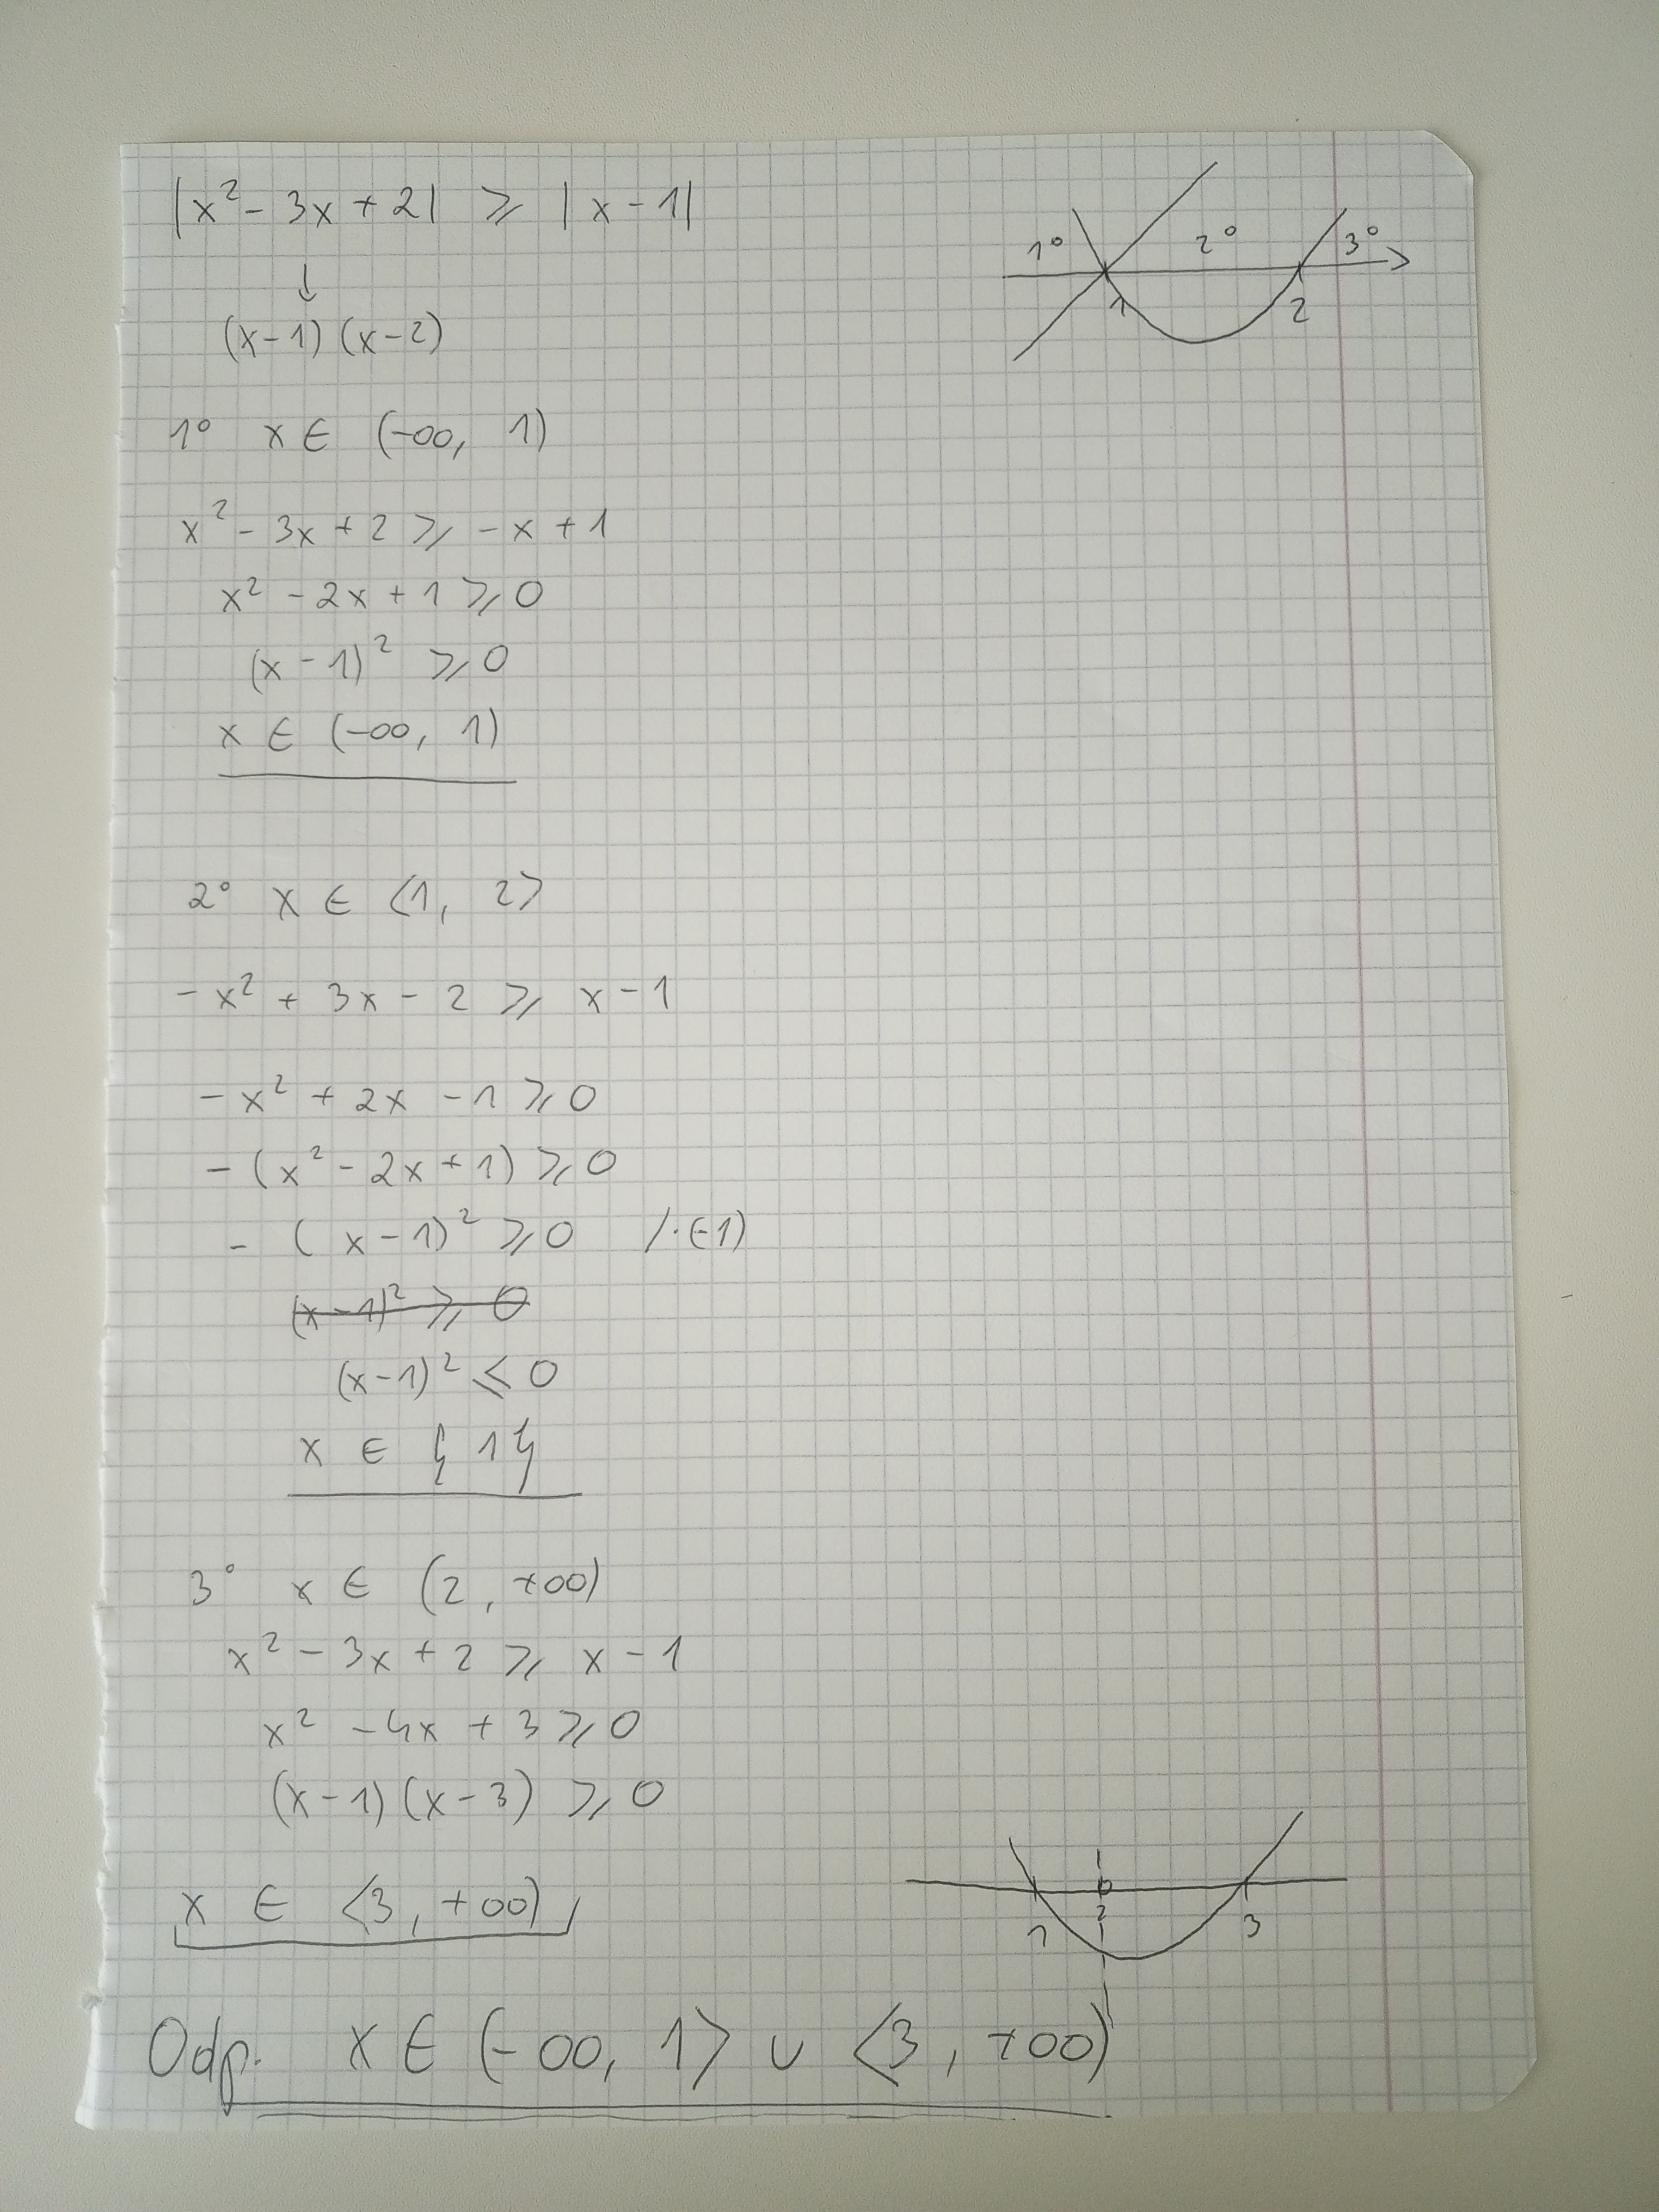 |x² - 3x + 2| ⩾ |x - 1|
1° 2° 3°
1 2
↓
(x-1) (x-2)
1° x ∈ (-∞, 1)
x² - 3x + 2 ⩾ - x + 1
x² - 2x + 1 ⩾ 0
(x - 1)² ⩾ 0
x ∈ (-∞, 1)
2° x ∈ ⟨1, 2⟩
- x² + 3x - 2 ⩾ x - 1
- x² + 2x - 1 ⩾ 0
- (x² - 2x + 1) ⩾ 0
- (x - 1)² ⩾ 0 /·(-1)
(x - 1)² ⩾ 0
(x - 1)² ⩽ 0
x ∈ {1}
3° x ∈ (2, +∞)
x² - 3x + 2 ⩾ x - 1
x² - 4x + 3 ⩾ 0
(x - 1) (x - 3) ⩾ 0
x ∈ ⟨3, +∞)
1 2 3
Odp. x ∈ (-∞, 1⟩ ∪ ⟨3, +∞)